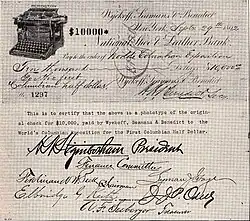 Wyckoff, Seamans & Benedict
$10000
New York, Sept 29th 1892
National Shoe & Leather Bank
Pay to the order of World's Columbian Exposition
Ten Thousand
for the first
Columbian half dollar.
Wyckoff, Seamans & Benedict
No 1297
This is to certify that the above is a phototype of the origi-
nal check for $10,000, paid by Wyckoff, Seamans & Benedict to the
World's Columbian Exposition for the First Columbian Half Dollar.
H. N. Higinbotham President
Finance Committee
Ferdinand W. Peck Chairman
Lyman J. Gage
Elbridge G.
A. F. Seeberger Treasurer